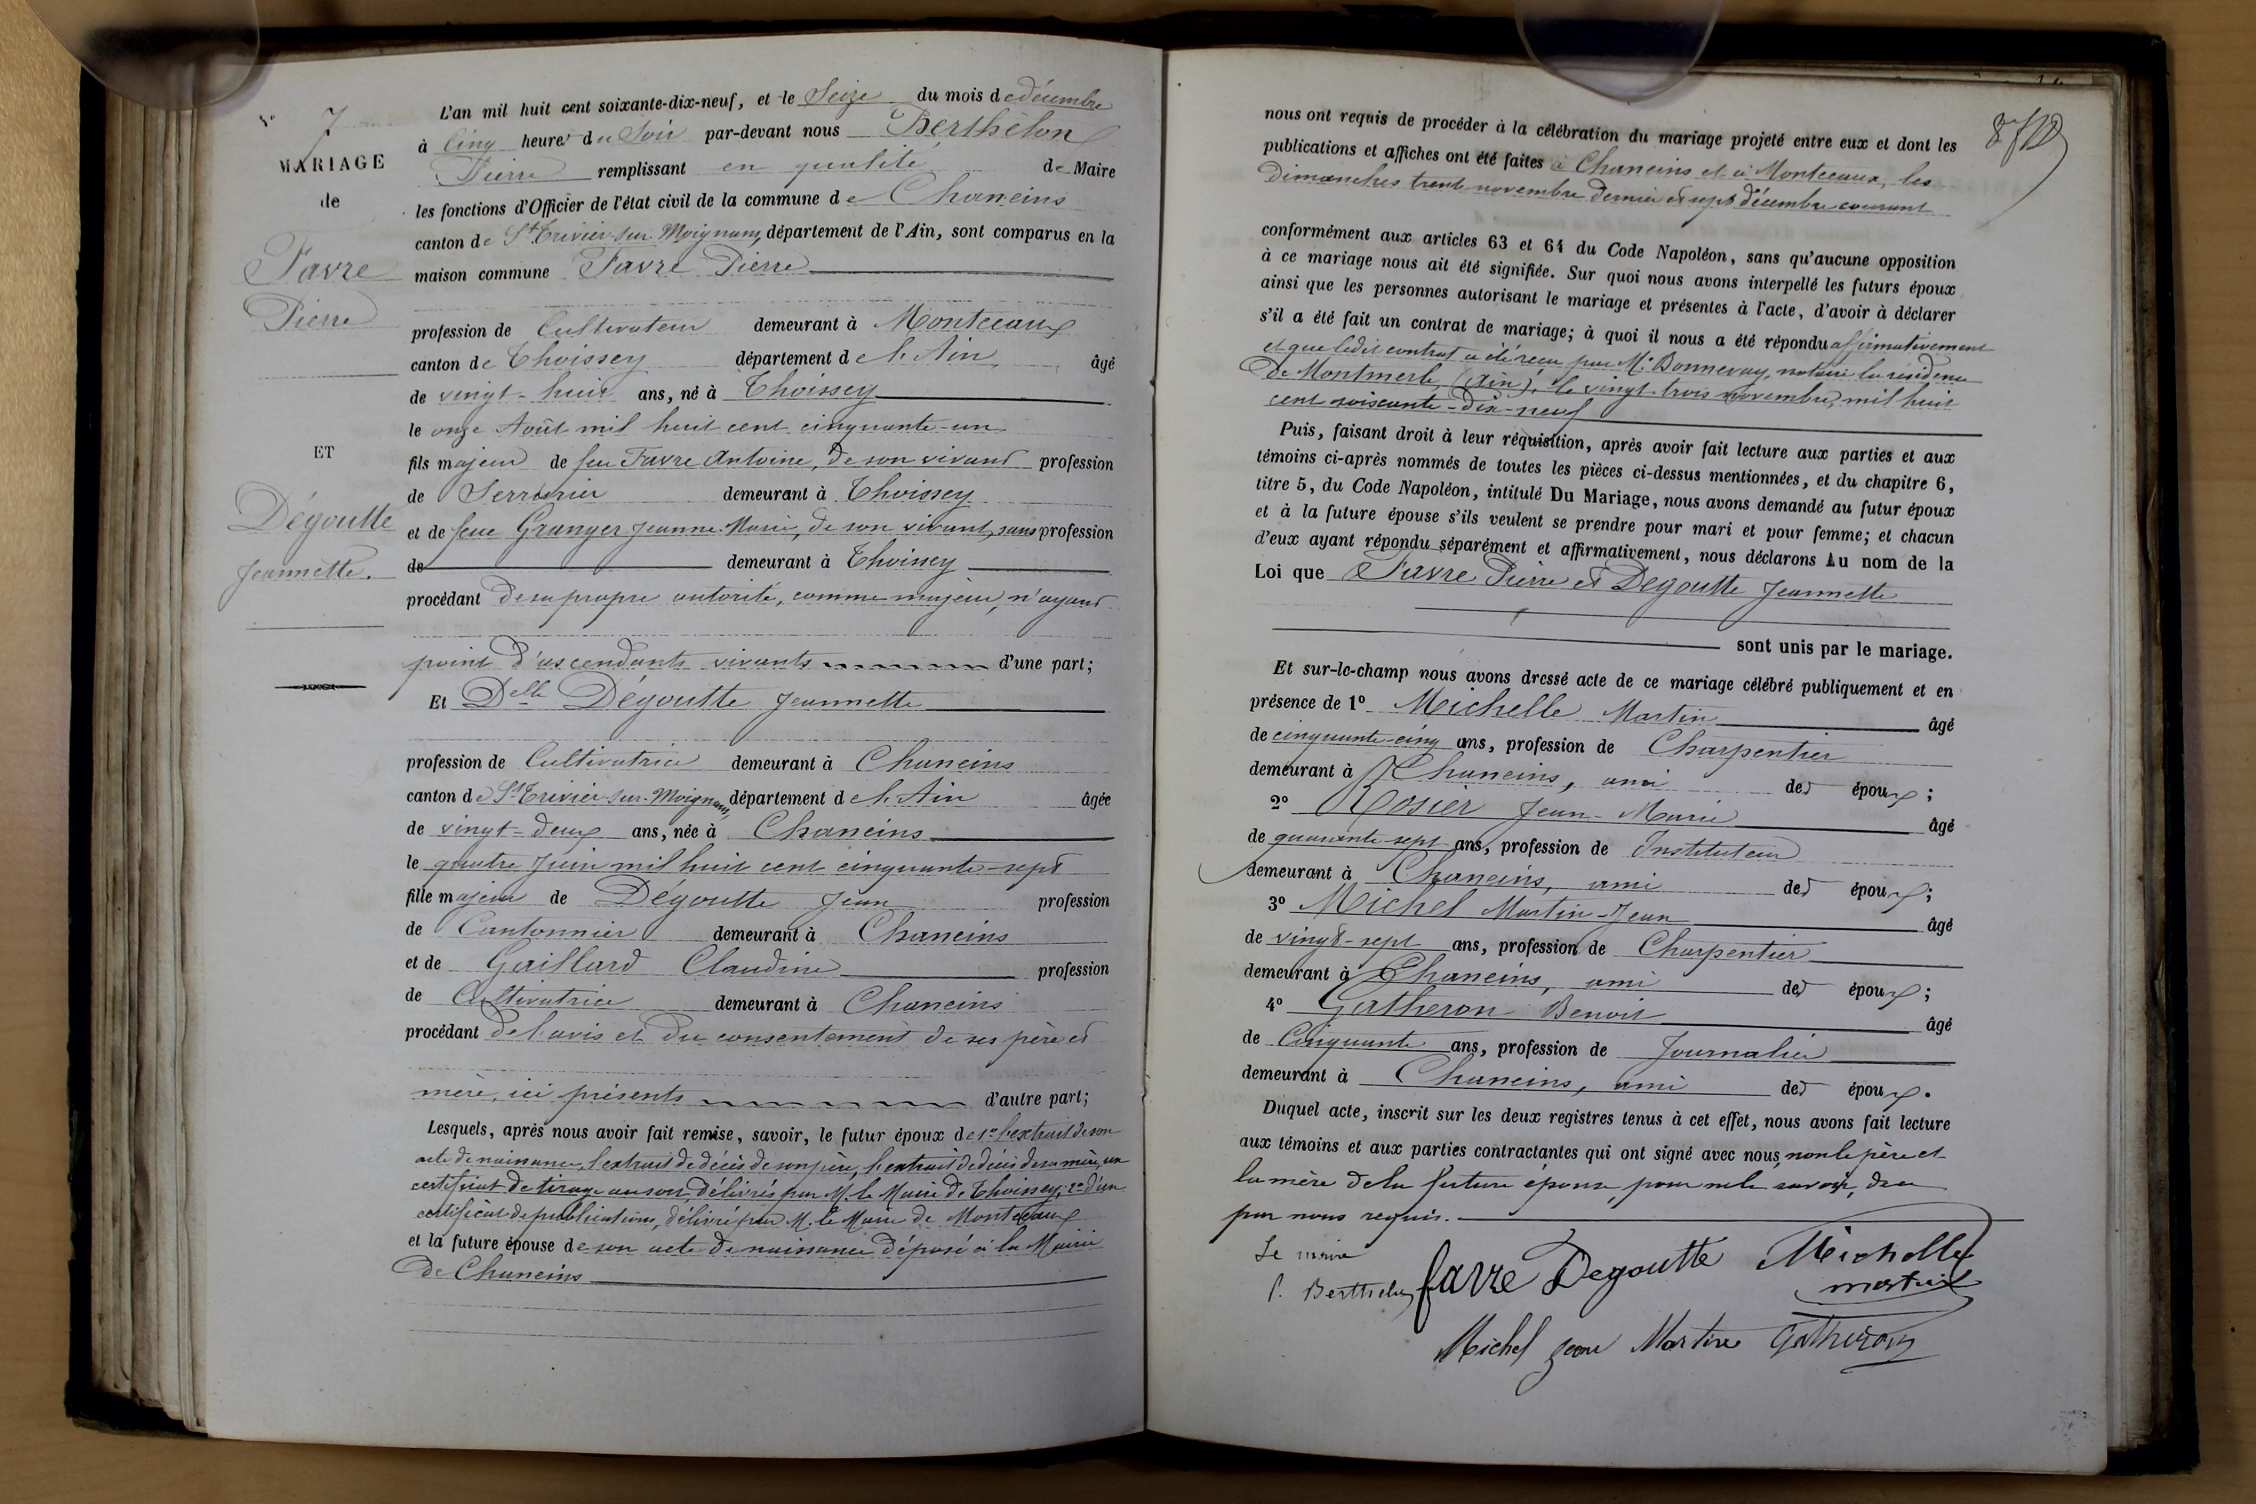 N° 7
MARIAGE
de
Favre
Pierre
ET
Dégoutte
Jeannette.
L'an mil huit cent soixante-dix-neuf, et le Seize du mois de décembre
à Cinq heures du Soir par-devant nous Berthelon
Pierre remplissant en qualité de Maire
les fonctions d'Officier de l'état civil de la commune de Chaneins
canton de St Trivier-sur-Moignans, département de l'Ain, sont comparus en la
maison commune Favre Pierre
profession de Cultivateur demeurant à Montceaux
canton de Thoissey département de l'Ain âgé
de vingt-huit ans, né à Thoissey
le onze Août mil huit cent cinquante-un
fils majeur de feu Favre Antoine, de son vivant profession
de Serrurier demeurant à Thoissey
et de feue Granger Jeanne-Marie, de son vivant, sans profession
de demeurant à Thoissey
procédant de sa propre autorité, comme majeur, n'ayant
point d'ascendants vivants d'une part;
Et Delle Dégoutte Jeannette
profession de Cultivatrice demeurant à Chaneins
canton de St Trivier-sur-Moignans, département de l'Ain âgée
de vingt-deux ans, née à Chaneins
le quatre Juin mil huit cent cinquante-sept
fille majeur de Dégoutte Jean profession
de Cantonnier demeurant à Chaneins
et de Gaillard Claudine profession
de Cultivatrice demeurant à Chaneins
procédant de l'avis et du consentement de ses père et
mère, ici présents d'autre part;
Lesquels, après nous avoir fait remise, savoir, le futur époux de 1° l'extrait de son
acte de naissance, l'extrait de décès de son père, l'extrait de décès de sa mère, un
certificat de tirage au sort, délivrés par M. le Maire de Thoissey; 2° d'un
certificat de publications, délivré par M. le Maire de Montceaux
et la future épouse de son acte de naissance déposé à la Mairie
de Chaneins
nous ont requis de procéder à la célébration du mariage projeté entre eux et dont les
publications et affiches ont été faites à Chaneins et à Montceaux, les
dimanches trente novembre dernier et sept décembre courant
conformément aux articles 63 et 64 du Code Napoléon, sans qu'aucune opposition
à ce mariage nous ait été signifiée. Sur quoi nous avons interpellé les futurs époux
ainsi que les personnes autorisant le mariage et présentes à l'acte, d'avoir à déclarer
s'il a été fait un contrat de mariage; à quoi il nous a été répondu affirmativement
et que ledit contrat a été reçu par Me Bonnevay, notaire la résidence
de Montmerle, (Ain), le vingt-trois novembre, mil huit
cent soixante-dix-neuf
Puis, faisant droit à leur réquisition, après avoir fait lecture aux parties et aux
témoins ci-après nommés de toutes les pièces ci-dessus mentionnées, et du chapitre 6,
titre 5, du Code Napoléon, intitulé Du Mariage, nous avons demandé au futur époux
et à la future épouse s'ils veulent se prendre pour mari et pour femme; et chacun
d'eux ayant répondu séparément et affirmativement, nous déclarons Au nom de la
Loi que Favre Pierre et Dégoutte Jeannette
sont unis par le mariage.
Et sur-le-champ nous avons dressé acte de ce mariage célébré publiquement et en
présence de 1° Michelle Martin âgé
de cinquante-cinq ans, profession de Charpentier
demeurant à Chaneins, ami des époux;
2° Rosier Jean-Marie âgé
de quarante-sept ans, profession de Instituteur
demeurant à Chaneins, ami des époux;
3° Michel Martin-Jean âgé
de vingt-sept ans, profession de Charpentier
demeurant à Chaneins, ami des époux;
4° Gatheron Benoit âgé
de Cinquante ans, profession de Journalier
demeurant à Chaneins, ami des époux.
Duquel acte, inscrit sur les deux registres tenus à cet effet, nous avons fait lecture
aux témoins et aux parties contractantes qui ont signé avec nous, non le père et
la mère de la future épouse, pour ne le savoir, de ce
par nous requis.
Le maire
P. Berthelon favre Degoutte Michelle
martin
Michel Jean Martin Gatheron